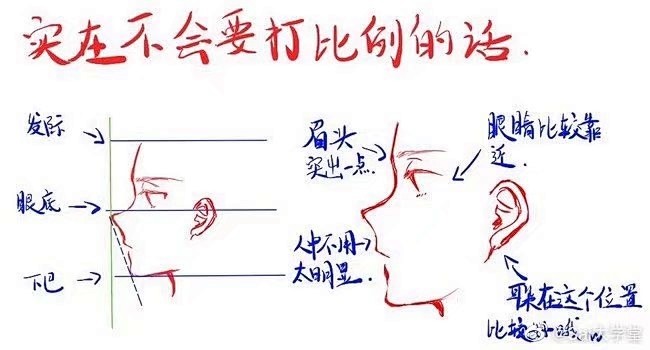 实在不会要打比例的话.
发际
眼底
下巴
眉头
突出一点.
眼睛比较靠
近.
人中不用
太明显.
耳朵在这个位置
比较